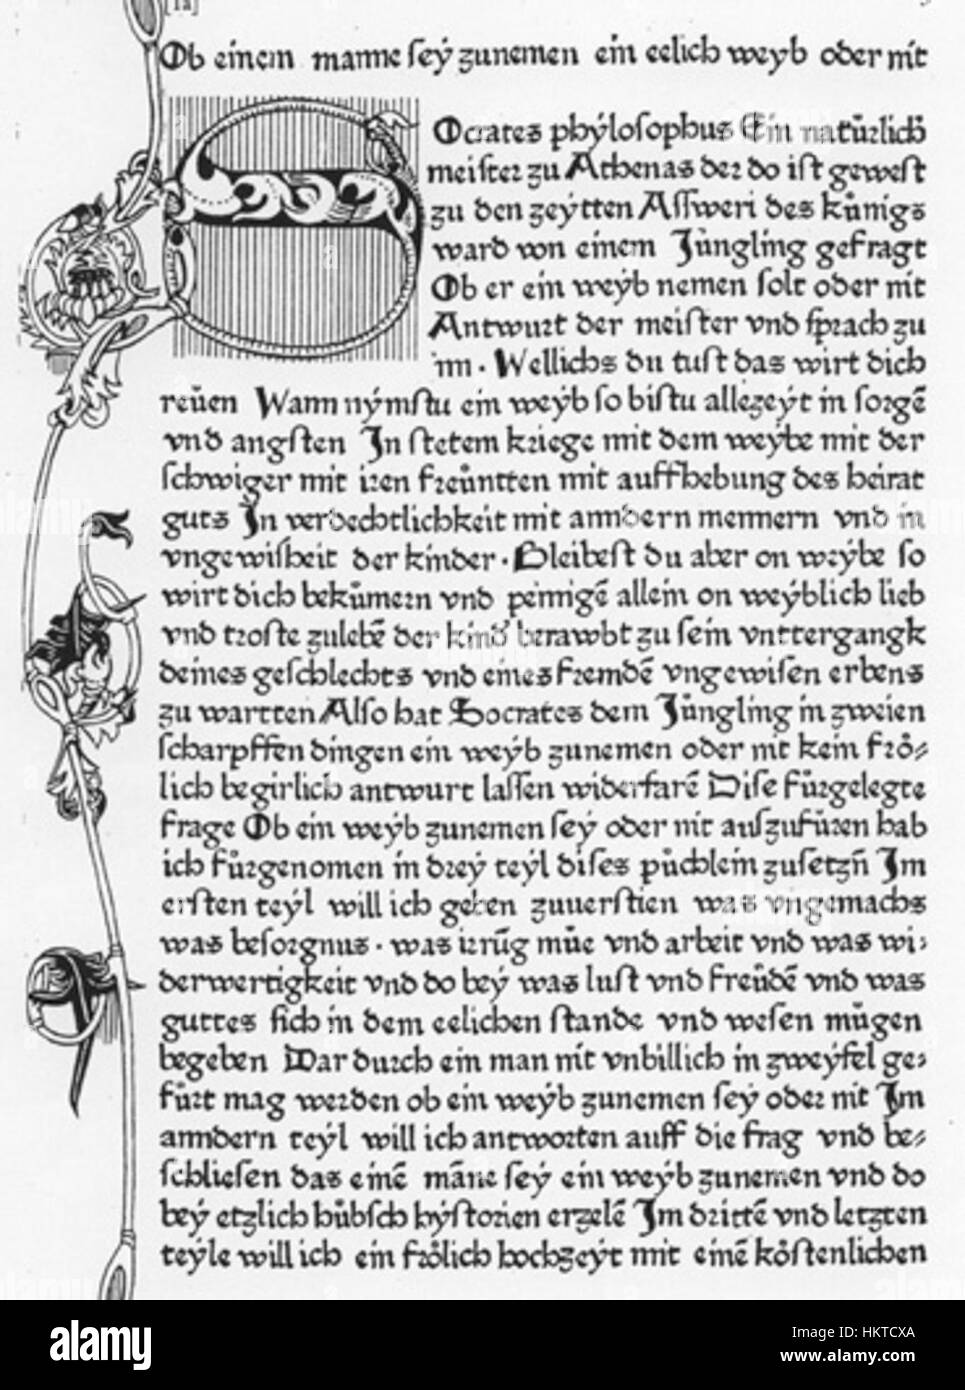 [1a]
Ob einem manne seÿ zunemen ein eelich weyb oder nit
SOcrates phÿlosophus Ein natürlich
meister zu Athenas der do ist gewest
zu den zeÿtten Assweri des künigs
ward von einem Jüngling gefragt
Ob er ein weÿb nemen solt oder nit
Antwurt der meister vnd sprach zu
im · Wellichs du tust das wirt dich
reüen Wann nÿmstu ein weÿb so bistu allezeÿt in sorgē
vnd angsten In stetem kriege mit dem weÿbe mit der
schwiger mit iren freüntten mit auffhebung des heirat
guts In verdechtlichkeit mit anndern mennern vnd in
vngewisheit der kinder · Bleibest du aber on weÿbe so
wirt dich bekümern vnd peinigē allein on weÿblich lieb
vnd troste zulebē der kind berawbt zu sein vnttergangk
deines geschlechts vnd eines fremdē vngewisen erbens
zu wartten Also hat Socrates dem Jüngling in zweien
scharpffen dingen ein weÿb zunemen oder nit kein frö⸗
lich begirlich antwurt lassen widerfarē Dise fürgelegte
frage Ob ein weÿb zunemen seÿ oder nit auszufüren hab
ich fürgenomen in dreÿ teÿl dises püchlein zusetzn̄ Im
ersten teÿl will ich geben zuuerstien was vngemachs
was besorgnus · was irrūg müe vnd arbeit vnd was wi⸗
derwertigkeit vnd do beÿ was lust vnd freüdē vnd was
guttes sich in dem eelichen stande vnd wesen mügen
begeben Dar durch ein man nit vnbillich in zweÿfel ge⸗
fürt mag werden ob ein weÿb zunemen seÿ oder nit Im
anndern teÿl will ich antworten auff die frag vnd be⸗
schliesen das einē māne seÿ ein weÿb zunemen vnd do
beÿ etzlich hübsch hÿstorien erzelē Im drittē vnd letzten
teÿle will ich ein frölich hochzeÿt mit einē köstenlichen
alamy
Image ID: HKTCXA
www.alamy.com